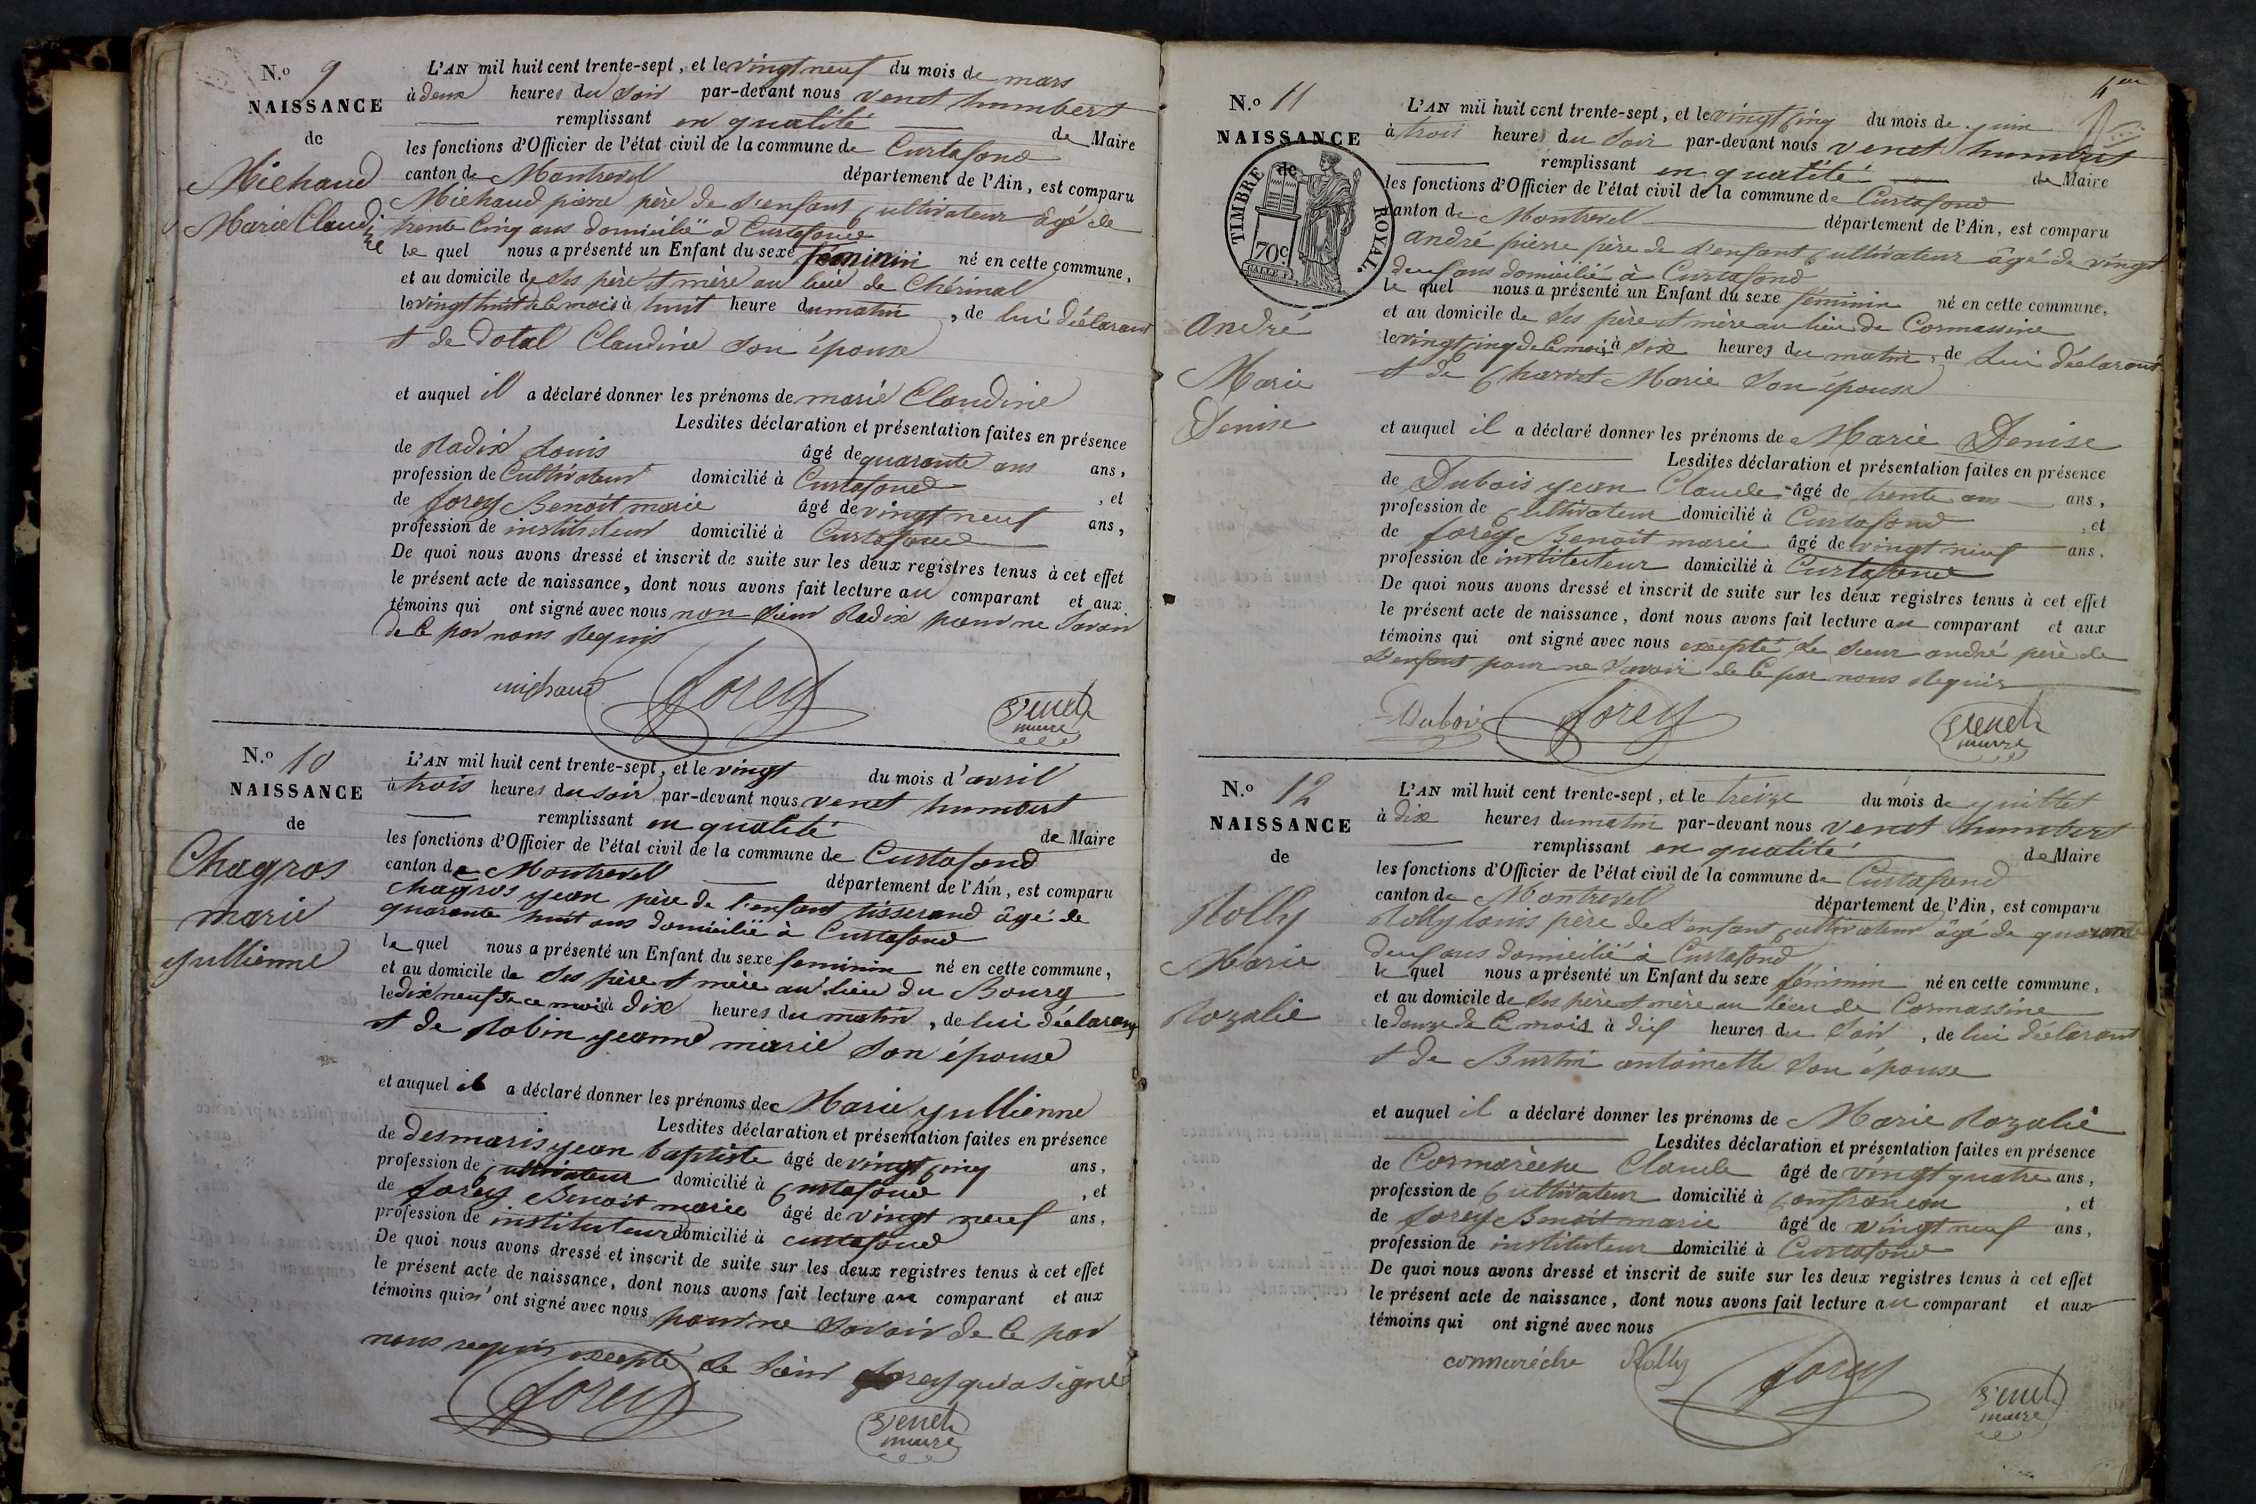 N.º 9
NAISSANCE
de
Michaud
Marie Claudine
L'AN mil huit cent trente-sept, et le vingt neuf du mois de mars
à deux heures du soir par-devant nous venet humbert
remplissant en qualité de Maire
les fonctions d'Officier de l'état civil de la commune de Curtafond
canton de Montrevel département de l'Ain, est comparu
Michaud pierre père de l'enfant Cultivateur âgé de
trente Cinq ans domicilié à Curtafond
le quel nous a présenté un Enfant du sexe féminin né en cette commune,
et au domicile de ses père et mère au lieu de Chérinal
le vingt huit de ce mois à huit heure du matin, de lui déclarant
et de Dotal Claudine son épouse
et auquel il a déclaré donner les prénoms de marie Claudine
Lesdites déclaration et présentation faites en présence
de Radix Louis âgé de quarante ans ans,
profession de Cultivateur domicilié à Curtafond
de forey Benoit marie âgé de vingt neuf ans, et
profession de instituteur domicilié à Curtafond
De quoi nous avons dressé et inscrit de suite sur les deux registres tenus à cet effet
le présent acte de naissance, dont nous avons fait lecture au comparant et aux
témoins qui ont signé avec nous non sieur Radix pour ne savoir
de ce par nous requis
michaud forey Venet maire
N.º 10
NAISSANCE
de
Chagros
marie
jullienne
L'AN mil huit cent trente-sept, et le vingt du mois d'avril
à trois heures du soir par-devant nous venet humbert
remplissant en qualité de Maire
les fonctions d'Officier de l'état civil de la commune de Curtafond
canton de Montrevel département de l'Ain, est comparu
chagros jean père de l'enfant tisserand âgé de
quarante huit ans domicilié à Curtafond
le quel nous a présenté un Enfant du sexe feminin né en cette commune,
et au domicile de ses père et mère au lieu du Bourg
le dix neuf de ce mois à dix heures du matin, de lui déclarant
et de Robin jeanne marie son épouse
et auquel il a déclaré donner les prénoms de Marie jullienne
Lesdites déclaration et présentation faites en présence
de desmaris jean baptiste âgé de vingt cinq ans,
profession de cultivateur domicilié à Curtafond, et
de forey Benoit marie âgé de vingt neuf ans,
profession de instituteur domicilié à curtafond
De quoi nous avons dressé et inscrit de suite sur les deux registres tenus à cet effet
le présent acte de naissance, dont nous avons fait lecture au comparant et aux
témoins qui n'ont signé avec nous pour ne savoir de ce par
nous requis excepté le sieur forey qui a signé
forey Venet maire
4me
N.º 11
NAISSANCE
de
TIMBRE ROYAL.
70c
André
Marie
Denise
L'AN mil huit cent trente-sept, et le vingt cinq du mois de juin
à trois heures du soir par-devant nous venet humbert
remplissant en qualité de Maire
les fonctions d'Officier de l'état civil de la commune de Curtafond
canton de Montrevel département de l'Ain, est comparu
André pierre père de l'enfant Cultivateur âgé de vingt
neuf ans domicilié à Curtafond
le quel nous a présenté un Enfant du sexe féminin né en cette commune,
et au domicile de ses père et mère au lieu de Cormassine
le vingt cinq de ce mois à six heures du matin, de lui déclarant
et de Charvet Marie son épouse
et auquel il a déclaré donner les prénoms de Marie Denise
Lesdites déclaration et présentation faites en présence
de Dubois jean Claude âgé de trente ans ans,
profession de Cultivateur domicilié à Curtafond, et
de forey Benoit marie âgé de vingt neuf ans,
profession de instituteur domicilié à Curtafond
De quoi nous avons dressé et inscrit de suite sur les deux registres tenus à cet effet
le présent acte de naissance, dont nous avons fait lecture au comparant et aux
témoins qui ont signé avec nous excepté le sieur andré père de
l'enfant pour ne savoir de ce par nous requis
Dubois forey Venet maire
N.º 12
NAISSANCE
de
Rolly
Marie
Rozalie
L'AN mil huit cent trente-sept, et le treize du mois de juillet
à dix heures du matin par-devant nous venet humbert
remplissant en qualité de Maire
les fonctions d'Officier de l'état civil de la commune de Curtafond
canton de Montrevel département de l'Ain, est comparu
Rolly louis père de l'enfant cultivateur âgé de quarante
neuf ans domicilié à Curtafond
le quel nous a présenté un Enfant du sexe féminin né en cette commune,
et au domicile de ses père et mère au lieu de Cormassine
le douze de ce mois à dix heures du soir, de lui déclarant
et de Burtin antoinette son épouse
et auquel il a déclaré donner les prénoms de Marie Rozalie
Lesdites déclaration et présentation faites en présence
de Cormarèche Claude âgé de vingt quatre ans,
profession de Cultivateur domicilié à Confrancon, et
de forey Benoit marie âgé de vingt neuf ans,
profession de instituteur domicilié à Curtafond
De quoi nous avons dressé et inscrit de suite sur les deux registres tenus à cet effet
le présent acte de naissance, dont nous avons fait lecture au comparant et aux
témoins qui ont signé avec nous
cormaréche Rolly forey Venet maire